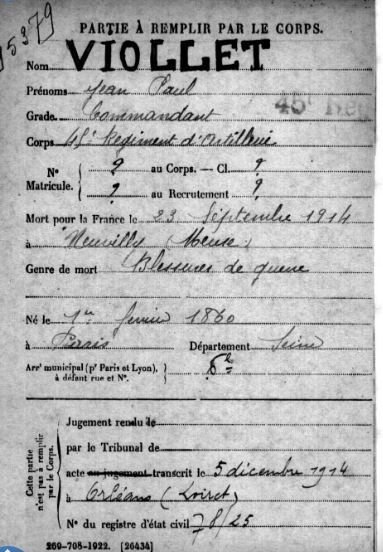 5379
PARTIE À REMPLIR PAR LE CORPS.
Nom VIOLLET
Prénoms Jean Paul
Grade Commandant
45e Reg
Corps 45e Régiment d'Artillerie
N° Matricule. { ? au Corps. — Cl. ?
? au Recrutement ?
Mort pour la France le 23 Septembre 1914
à Neuvilly (Meuse)
Genre de mort Blessures de guerre
Né le 1er février 1860
à Paris Département Seine
Arrt municipal (pr Paris et Lyon), à défaut rue et N°. }
Cette partie n'est pas à remplir par le Corps.
Jugement rendu le
par le Tribunal de
acte ou jugement transcrit le 5 décembre 1914
à Orléans (Loiret)
N° du registre d'état civil 78/25
269-708-1922. [26434]